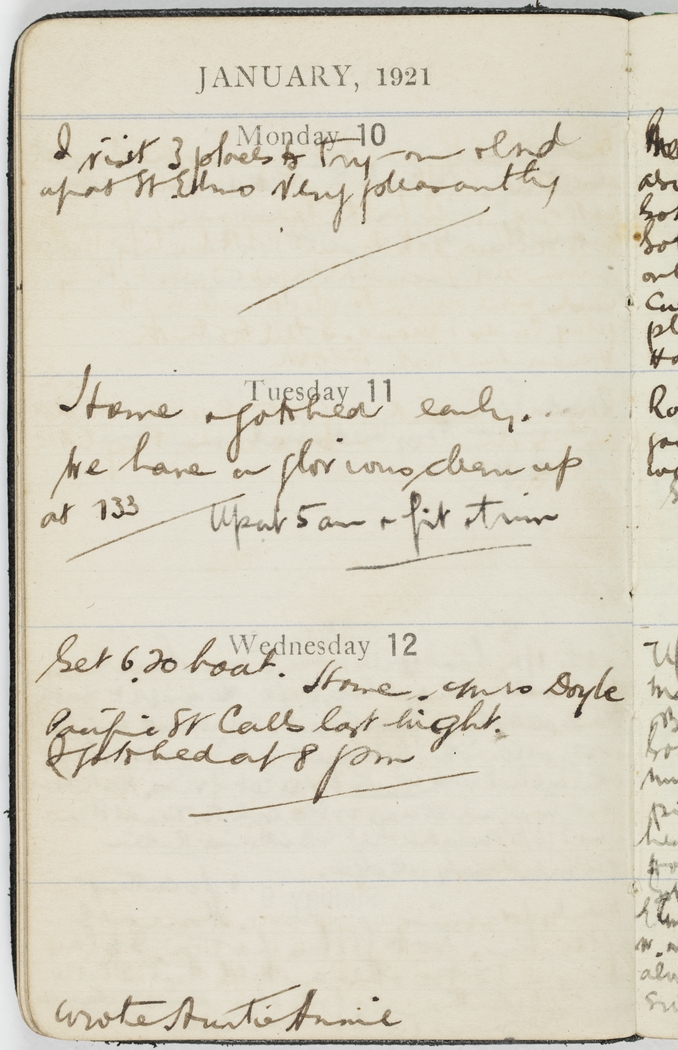 JANUARY, 1921
Monday 10
I visit 3 places to Try on & End
up at St Elmo Very pleasantly
Tuesday 11
Home early
We have a glorious clean up
at 133 Up at 5 am & fit & trim
Wednesday 12
Get 6.20 boat. Home. Mrs Doyle
Pacific St Calls last night.
I at 8 pm
Wrote Auntie Annie